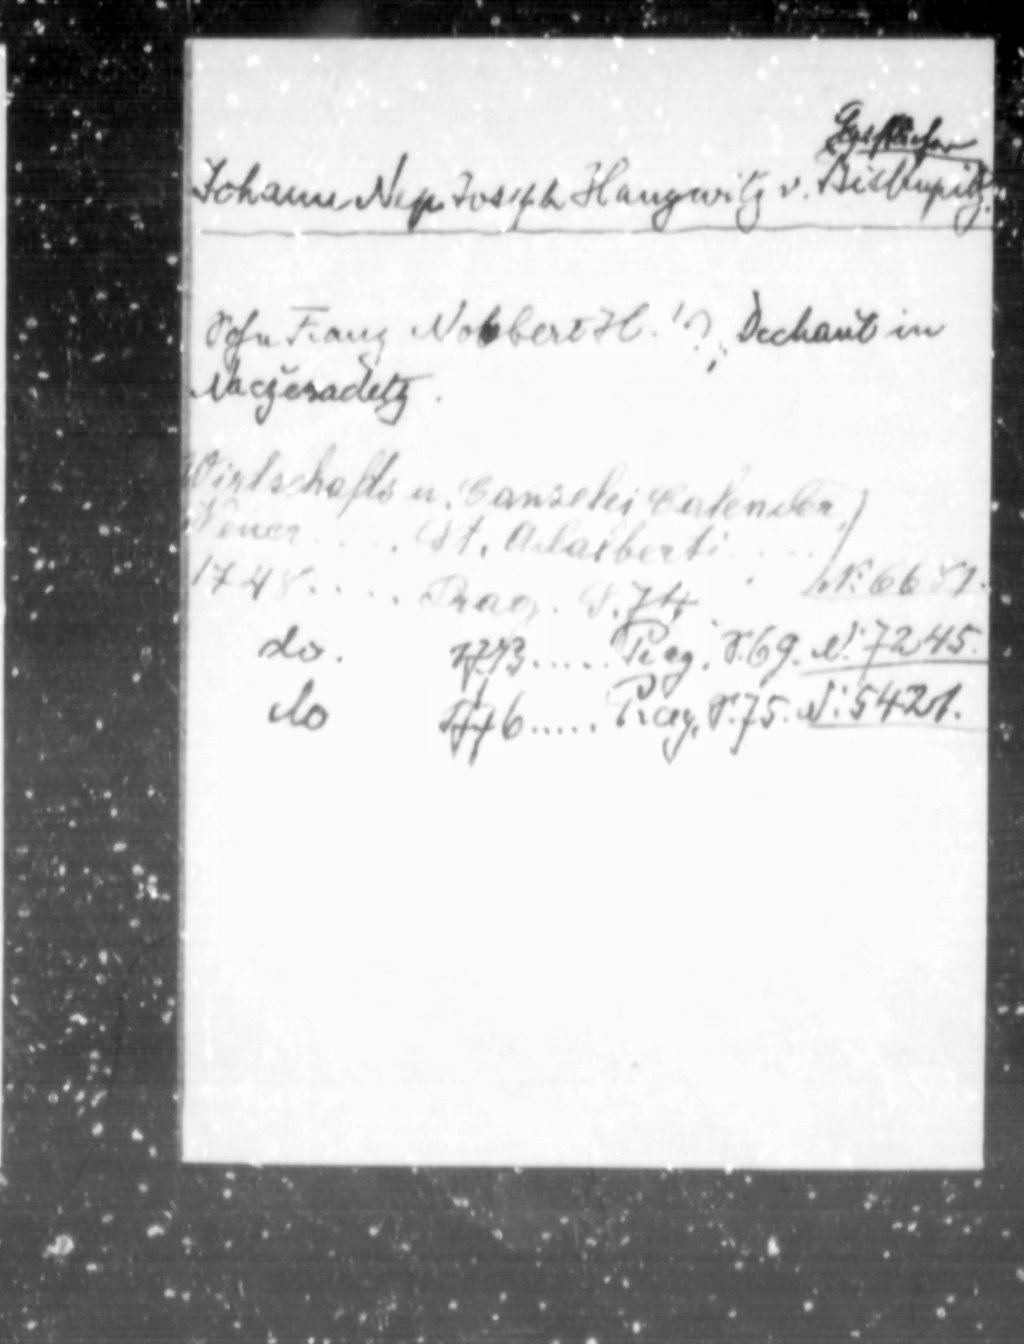 Geistlicher
Johann Nep Joseph Haugwitz v. Biskupitz.
Sohn Franz Norbert H. (?), Dechant in
Naczeradetz.
Wirtschafts u. Canzelei Calender,)
Neuer .... St. Adalberti .....
1748..... Prag. S. 74. N: 6681.
do. 1773..... Prag. S. 69. N: 7245.
do 1776..... Prag. S. 75. N: 5421.